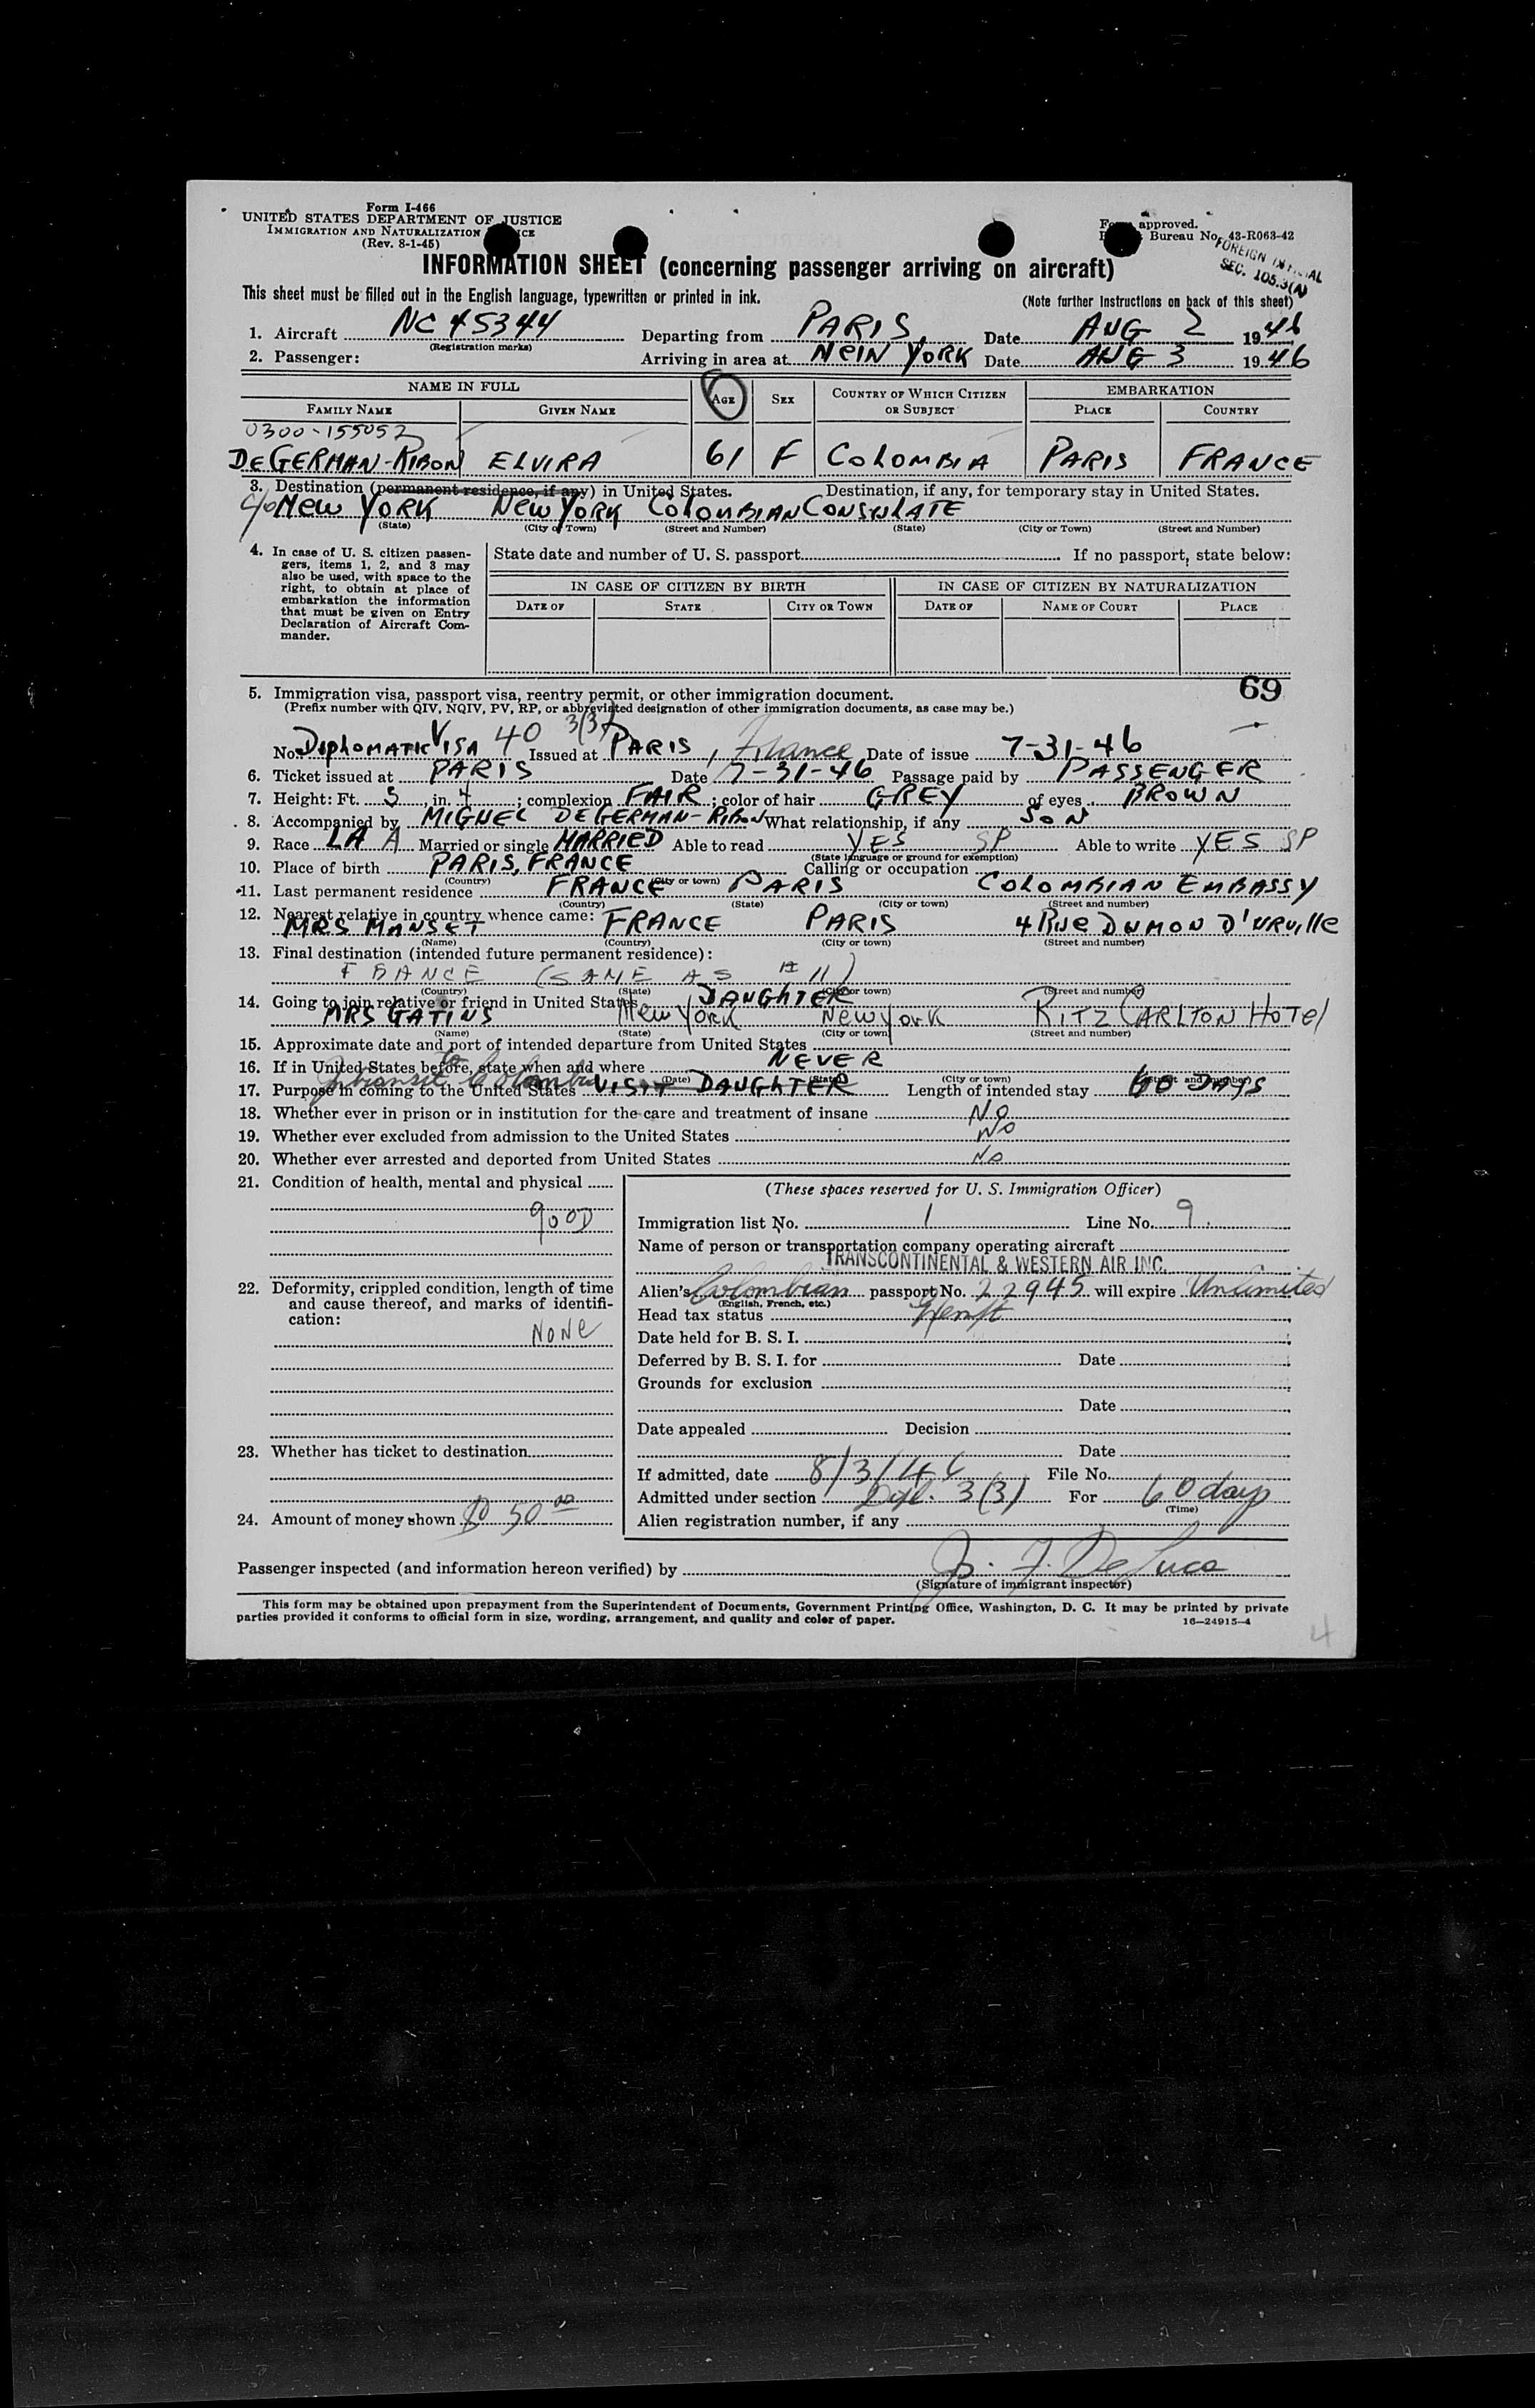 Form I-466
UNITED STATES DEPARTMENT OF JUSTICE
IMMIGRATION AND NATURALIZATION
(Rev. 8-1-45)
approved.
Bureau No. 43-R063-42
FOREIGN
SEC. 105.3(A)
INFORMATION SHEET (concerning passenger arriving on aircraft)
This sheet must be filled out in the English language, typewritten or printed in ink.
(Note further instructions on back of this sheet)
1. Aircraft NC 45344 Departing from PARIS, Date AUG 2 1946
(Registration marks)
2. Passenger: Arriving in area at NEW YORK Date AUG 3 1946
NAME IN FULL AGE SEX COUNTRY OF WHICH CITIZEN OR SUBJECT EMBARKATION
FAMILY NAME GIVEN NAME PLACE COUNTRY
0300-155052
DEGERMAN-RIBON ELVIRA 61 F COLOMBIA PARIS FRANCE
3. Destination (permanent residence, if any) in United States. Destination, if any, for temporary stay in United States.
C/o New YORK NEW YORK COLOMBIAN CONSULATE
(State) (City or Town) (Street and Number) (State) (City or Town) (Street and Number)
4. In case of U. S. citizen passengers, items 1, 2, and 3 may also be used, with space to the right, to obtain at place of embarkation the information that must be given on Entry Declaration of Aircraft Commander.
State date and number of U. S. passport If no passport, state below:
IN CASE OF CITIZEN BY BIRTH IN CASE OF CITIZEN BY NATURALIZATION
DATE OF STATE CITY OR TOWN DATE OF NAME OF COURT PLACE
69
5. Immigration visa, passport visa, reentry permit, or other immigration document.
(Prefix number with QIV, NQIV, PV, RP, or abbreviated designation of other immigration documents, as case may be.)
No. DIPLOMATIC VISA 40 3(3) Issued at PARIS, France Date of issue 7-31-46
6. Ticket issued at PARIS Date 7-31-46 Passage paid by PASSENGER
7. Height: Ft. 5 in. 4; complexion FAIR; color of hair GREY of eyes BROWN
8. Accompanied by MIGUEL DEGERMAN-RIBON What relationship, if any SON
9. Race LA A Married or single MARRIED Able to read YES SP Able to write YES SP
(State language or ground for exemption)
10. Place of birth PARIS, FRANCE Calling or occupation
(Country) (City or town)
11. Last permanent residence FRANCE PARIS COLOMBIAN EMBASSY
(Country) (State) (City or town) (Street and number)
12. Nearest relative in country whence came:
MRS MANSET FRANCE PARIS 4 RUE DUMON D'URVILLE
(Name) (Country) (City or town) (Street and number)
13. Final destination (intended future permanent residence):
FRANCE (SAME AS # 11)
(Country) (State) (City or town) (Street and number)
14. Going to join relative or friend in United States DAUGHTER
MRS GATINS New YORK New York RITZ CARLTON HOTEL
(Name) (State) (City or town) (Street and number)
15. Approximate date and port of intended departure from United States
16. If in United States before, state when and where NEVER
(Date) (State) (City or town) (Street and number)
In transit to Colombia
17. Purpose in coming to the United States VISIT DAUGHTER Length of intended stay 60 DAYS
18. Whether ever in prison or in institution for the care and treatment of insane NO
19. Whether ever excluded from admission to the United States NO
20. Whether ever arrested and deported from United States NO
21. Condition of health, mental and physical
GOOD
22. Deformity, crippled condition, length of time and cause thereof, and marks of identification:
NONE
23. Whether has ticket to destination
24. Amount of money shown 50 00
(These spaces reserved for U. S. Immigration Officer)
Immigration list No. 1 Line No. 9.
Name of person or transportation company operating aircraft
TRANSCONTINENTAL & WESTERN AIR INC.
Alien's Colombian passport No. 22945 will expire Unlimited
(English, French, etc.)
Head tax status
Date held for B. S. I.
Deferred by B. S. I. for Date
Grounds for exclusion
Date
Date appealed Decision
Date
If admitted, date 8/3/46 File No.
Admitted under section Dipl. 3(3) For 60 days
(Time)
Alien registration number, if any
Passenger inspected (and information hereon verified) by
(Signature of immigrant inspector)
This form may be obtained upon prepayment from the Superintendent of Documents, Government Printing Office, Washington, D. C. It may be printed by private
parties provided it conforms to official form in size, wording, arrangement, and quality and color of paper. 16—24915-4
4